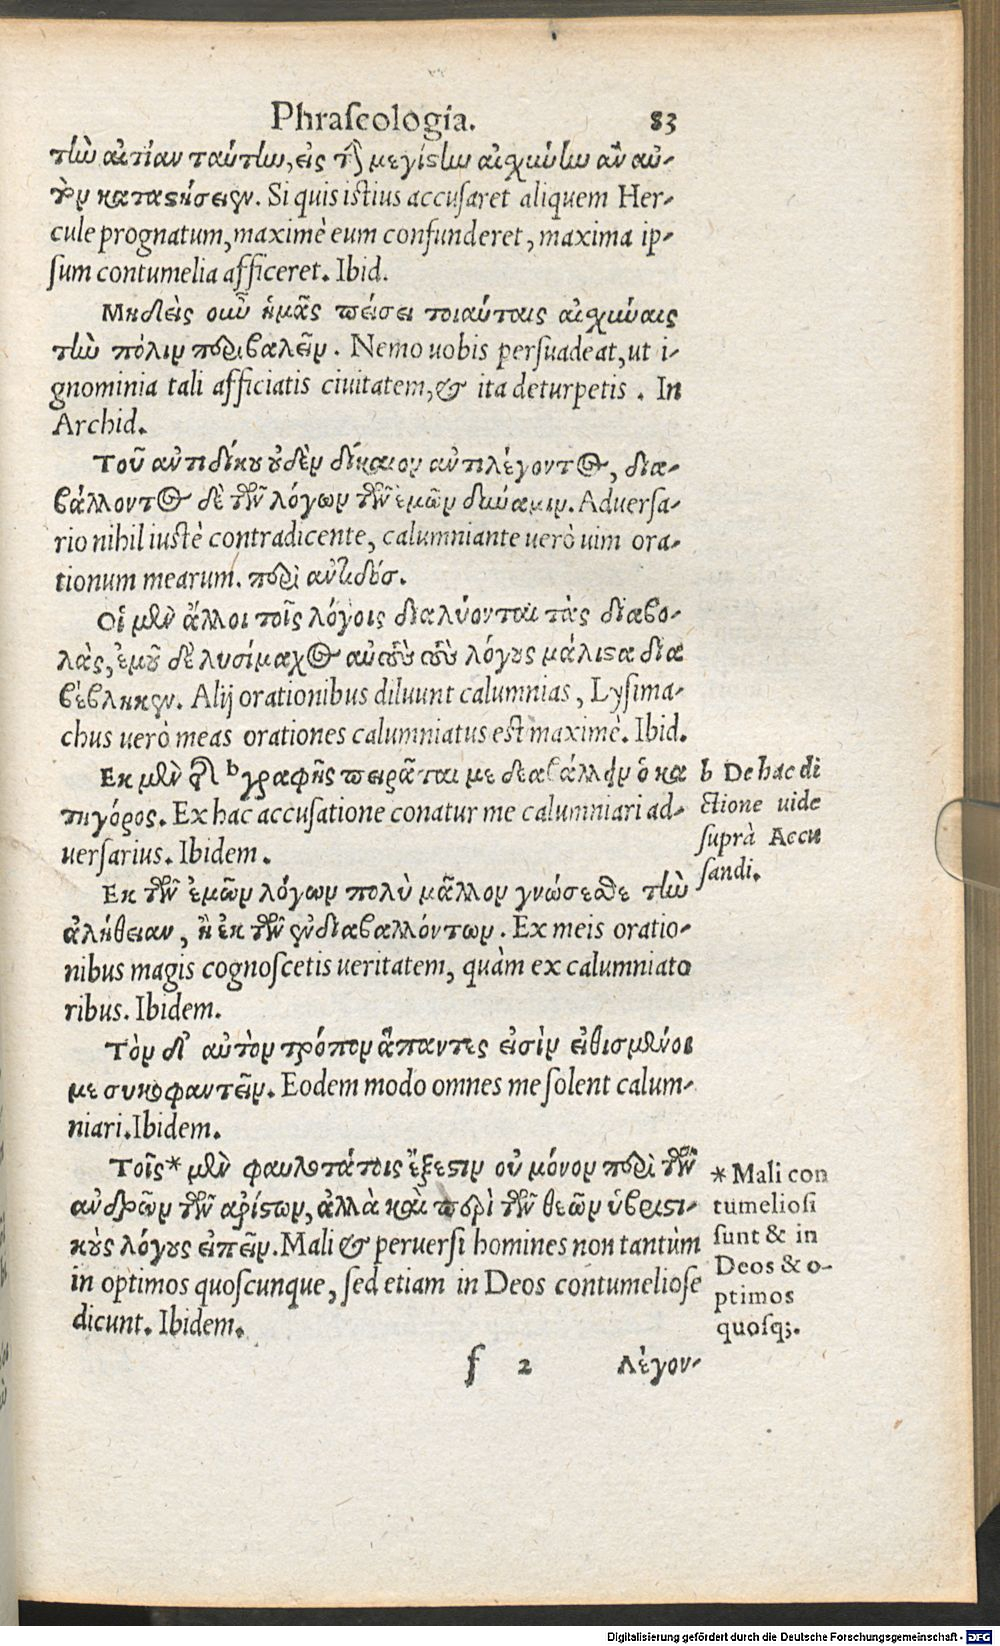 Phraseologia. 83
τὴν αἰτίαν ταύτην, εἰς τὴν μεγίστην αἰσχύνην ἂν αὐ-
τὸν καταστήσειεν. Si quis istius accusaret aliquem Her-
cule prognatum, maximè eum confunderet, maxima ip-
sum contumelia afficeret. Ibid.
Μηδεὶς οὖν ἡμᾶς πείσει τοιαύταις αἰσχύναις
τὴν πόλιν περιβαλεῖν. Nemo uobis persuadeat, ut i-
gnominia tali afficiatis ciuitatem, & ita deturpetis. In
Archid.
Τοῦ ἀντιδίκου οὐδὲν δίκαιον ἀντιλέγοντος, δια-
βάλλοντος δὲ τὴν λόγων τῶν ἐμῶν δύναμιν. Aduersa-
rio nihil iustè contradicente, calumniante uerò uim ora-
tionum mearum. περὶ ἀντιδόσ.
Οἱ μὲν ἄλλοι τοῖς λόγοις διαλύονται τὰς διαβο-
λὰς, ἐμοῦ δὲ λυσίμαχος αὐτοὺς τοὺς λόγους μάλιστα δια
βέβληκεν. Alij orationibus diluunt calumnias, Lysima-
chus uerò meas orationes calumniatus est maximè. Ibid.
Εκ μὲν τῆς b γραφῆς πειρᾶται με δεαβάλλειν ὁ κα
τηγόρος. Ex hac accusatione conatur me calumniari ad-
uersarius. Ibidem.
Εκ τῶν ἐμῶν λόγων πολὺ μᾶλλον γνώσεσθε τὴν
ἀλήθειαν, ἢ ἐκ τῶν ἐνδιαβαλλόντων. Ex meis oratio-
nibus magis cognoscetis ueritatem, quàm ex calumniato
ribus. Ibidem.
Τὸν δ' αὐτὸν τρόπον ἅπαντες εἰσὶν εἰθισμένοι
με συκοφαντεῖν. Eodem modo omnes me solent calum-
niari. Ibidem.
Τοῖς* μὲν φαυλοτάτοις ἔξεστιν οὐ μόνον περὶ τῶν
ἀνδρῶν τῶν ἀρίστων, ἀλλὰ καὶ περὶ τῶν θεῶν ὑβριστι-
κοὺς λόγους εἰπεῖν. Mali & peruersi homines non tantùm
in optimos quoscunque, sed etiam in Deos contumeliose
dicunt. Ibidem.
f 2 Λέγον-
b De hac di
ctione uide
suprà Accu
sandi.
* Mali con
tumeliosi
sunt & in
Deos & o-
ptimos
quosq;.
Digitalisierung gefördert durch die Deutsche Forschungsgemeinschaft - DFG